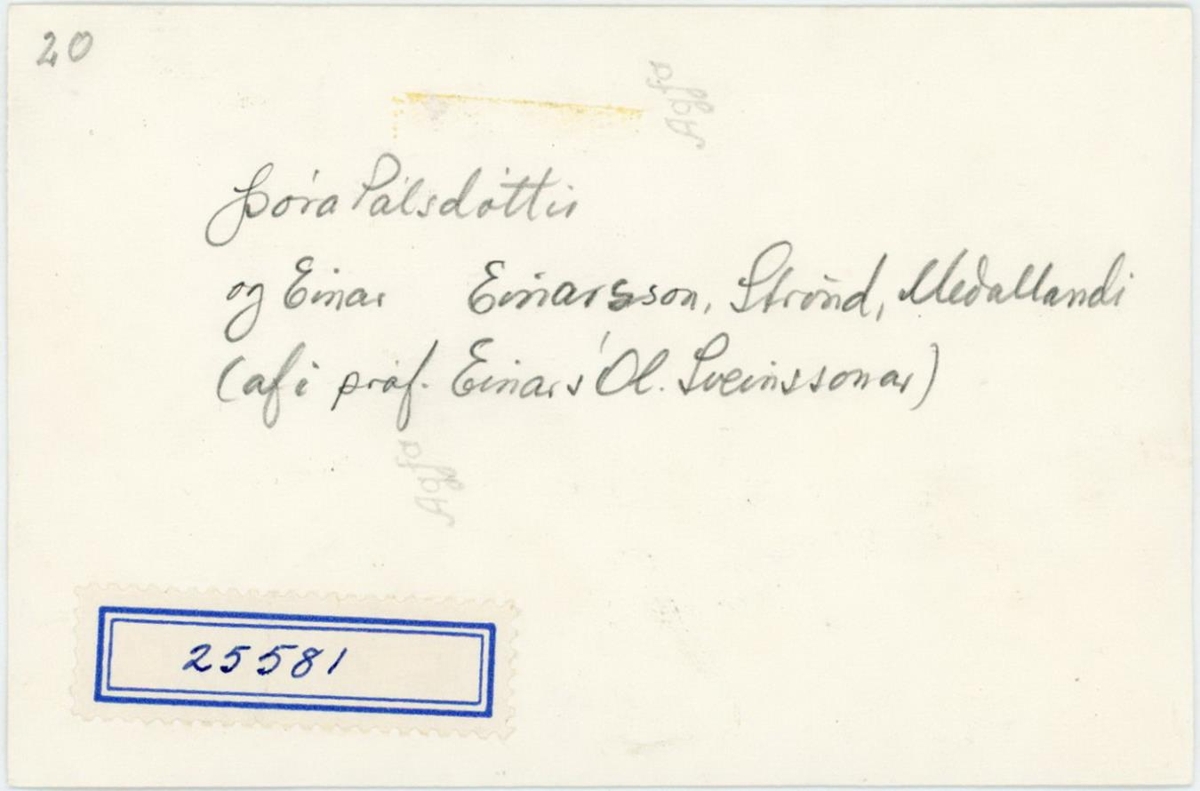 20
Agfa
Þóra Pálsdóttir
og Einar Einarsson, Strönd, Meðallandi
(afi próf. Einars Ól. Sveinssonar)
Agfa
25581